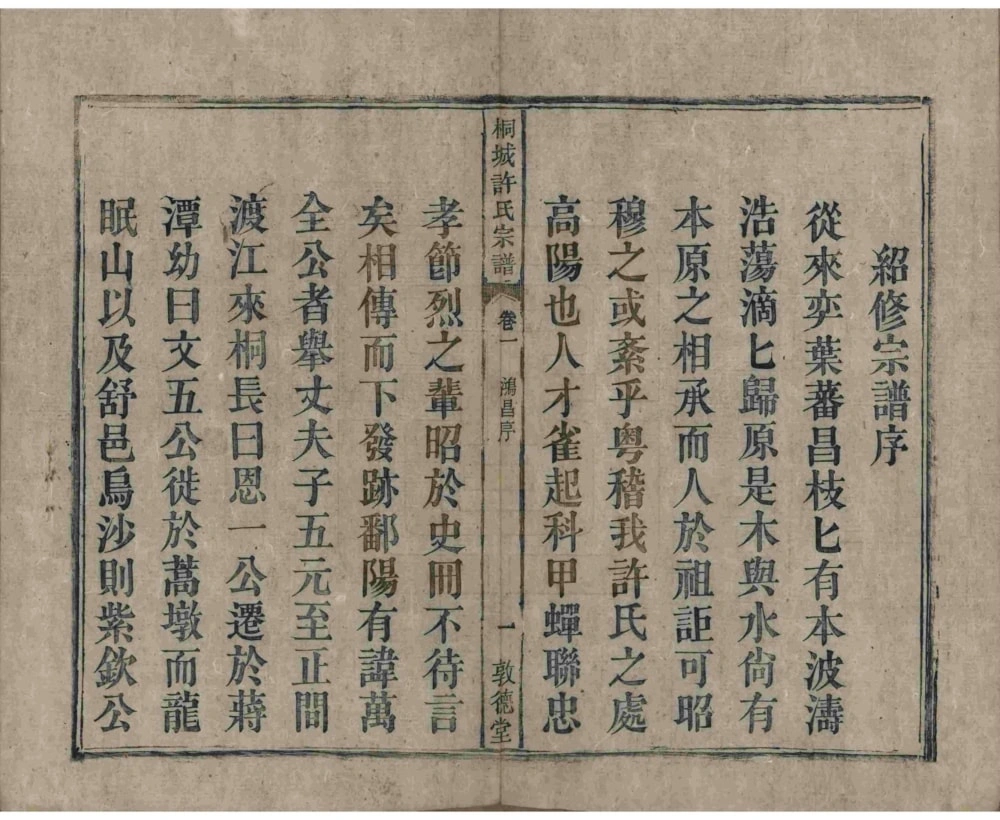 紹修宗譜序
從來奕葉蕃昌枝匕有本波濤
浩蕩滴匕歸原是木與水尙有
本原之相承而人於祖詎可昭
穆之或紊乎粤稽我許氏之處
高陽也人才雀起科甲蟬聯忠
桐城許氏宗譜
卷一
鴻昌序
一
敦德堂
孝節烈之輩昭於史冊不待言
矣相傳而下發跡鄱陽有諱萬
全公者舉丈夫子五元至正間
渡江來桐長曰恩一公遷於蔣
潭幼曰文五公徙於蒿墩而龍
眠山以及舒邑烏沙則紫欽公